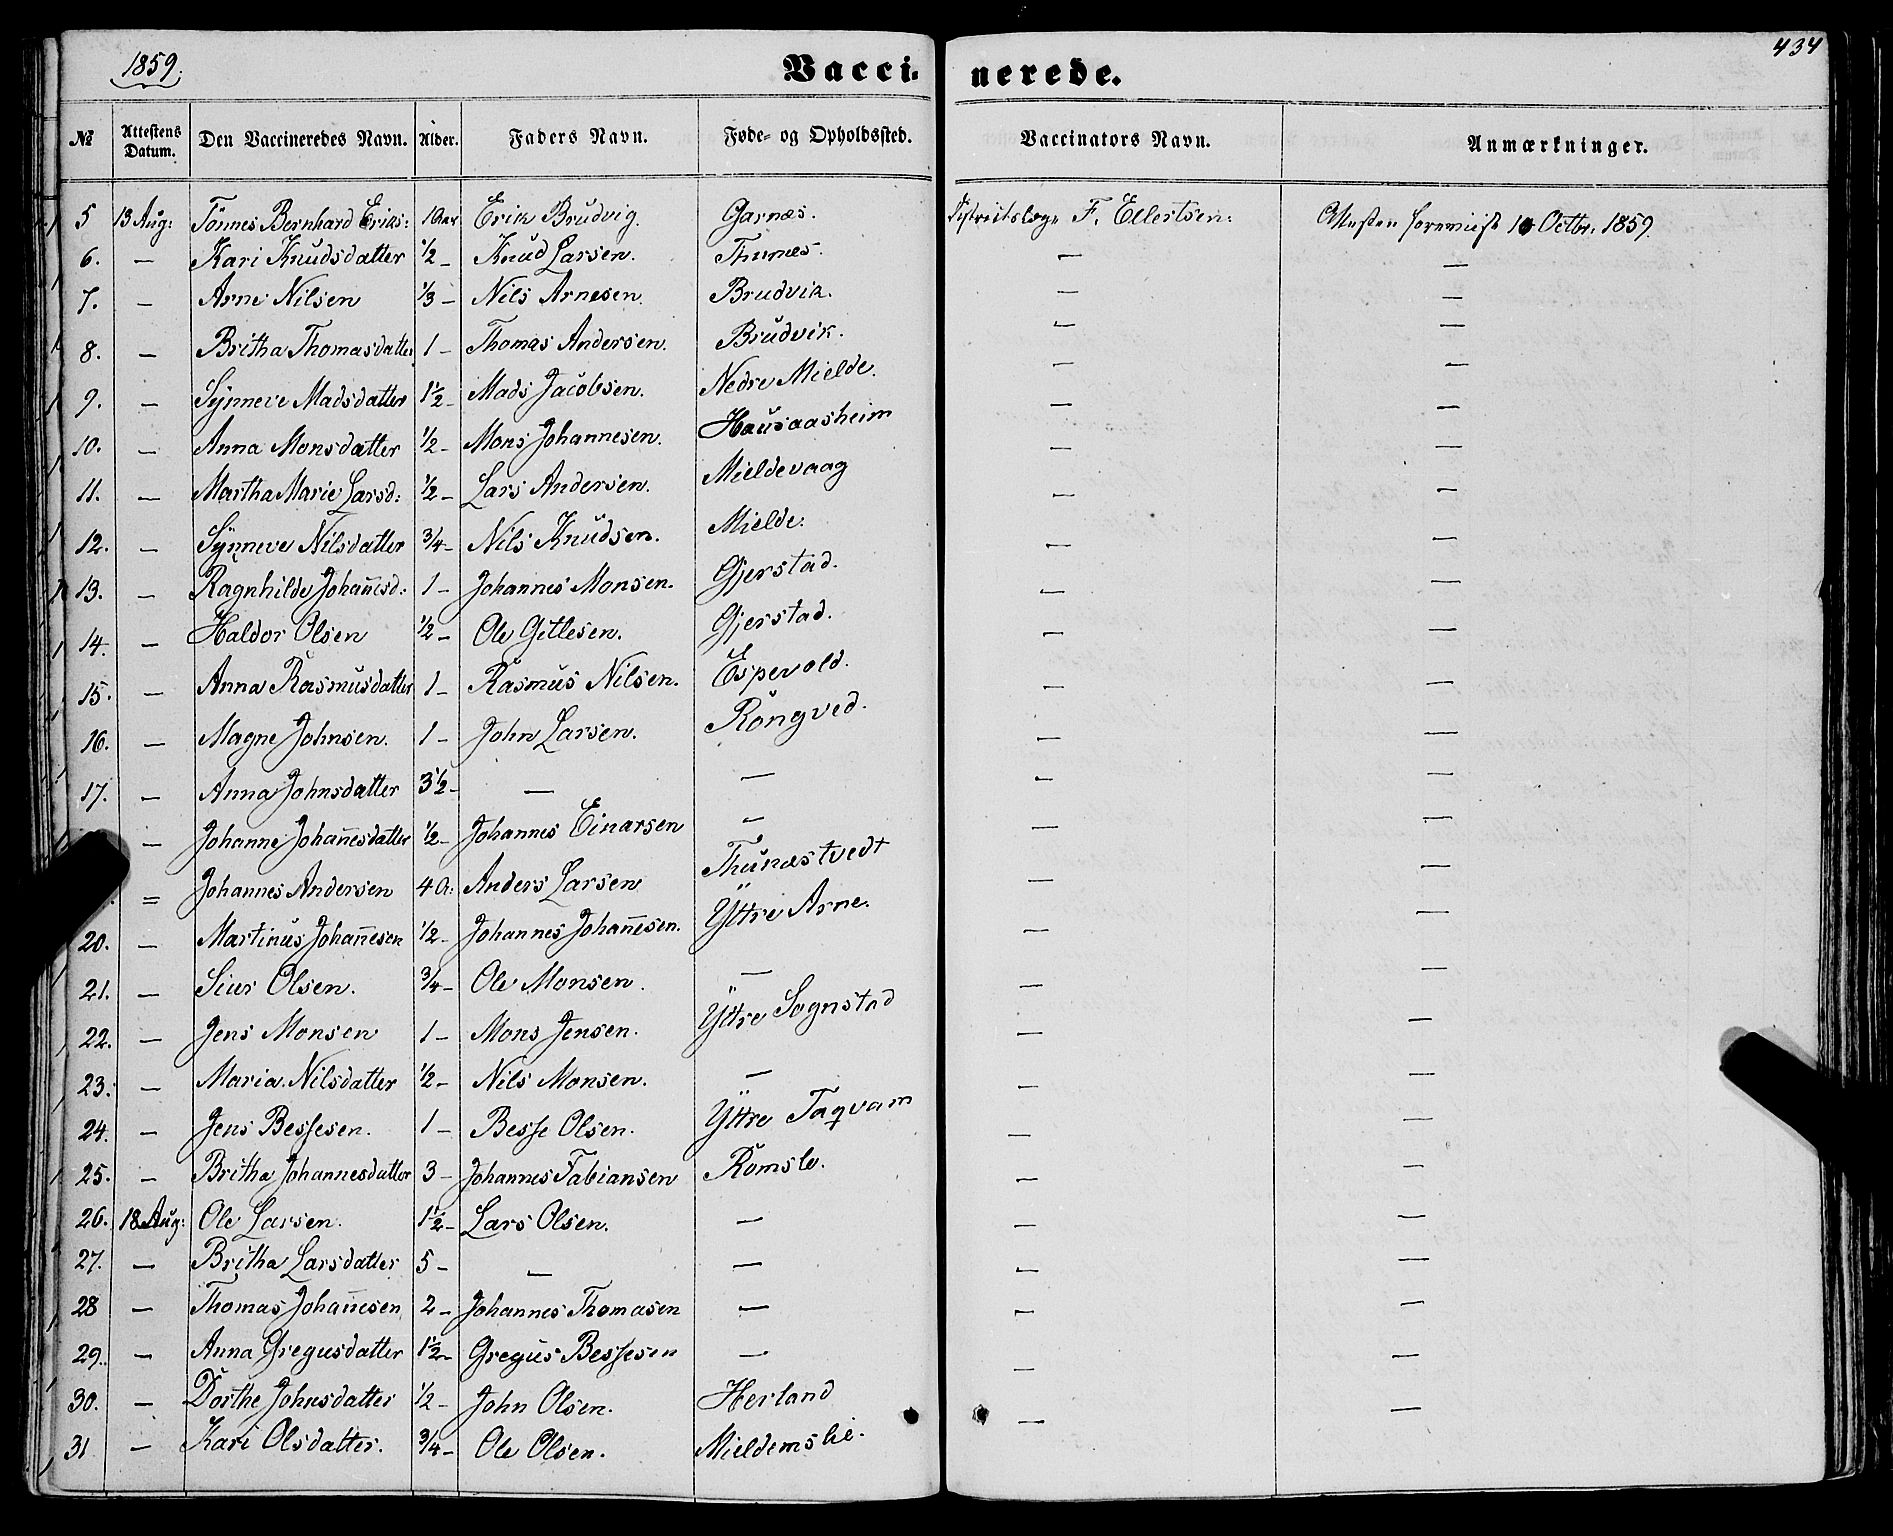 1859.
Vaccinerede.
434
No | Attestens Datum. | Den Vaccineredes Navn. | Alder. | Faders Navn. | Føde- og Opholdssted. | Vaccinators Navn. | Anmærkninger.
5 | 13 Aug: | Tönnes Bernhard Eriks: | 1 Aar | Erik Brudvig. | Garnæs. | Distriktslæge F. Ellertsen: | Attesten foreviist 10 Octbr. 1859.
6. | — | Kari Knudsdatter | 1/2 – | Knud Larsen. | Thunes. | — | —
7. | — | Arne Nilsen | 1/3 – | Nils Arnesen. | Brudvik. | — | —
8. | — | Britha Thomasdatter | 1 – | Thomas Andersen. | Brudvik. | — | —
9. | — | Synneve Madsdatter | 1 1/2 – | Mads Jacobsen. | Nedre Mielde. | — | —
10. | — | Anna Monsdatter | 1/2 – | Mons Johannesen. | Hausaasheim | — | —
11. | — | Martha Marie Larsd: | 1/2 – | Lars Andersen. | Mieldevaag | — | —
12. | — | Synneve Nilsdatter | 3/4 – | Nils Knudsen. | Mielde. | — | —
13. | — | Ragnhilde Johan̄esd: | 1 – | Johannes Monsen. | Gjerstad. | — | —
14. | — | Haldor Olsen | 1/2 – | Ole Gitlesen. | Gjerstad. | — | —
15. | — | Anna Rasmusdatter | 1 – | Rasmus Nilsen. | Espevold. | — | —
16. | — | Magne Johnsen. | 1 – | John Larsen. | Röngved. | — | —
17. | — | Anna Johnsdatter | 3 1/2 – | — | — | — | —
— | Johanne Johan̄esdatter | 1/2 – | Johannes Einarsen | – | — | —
= | Johannes Andersen | 4 A: | Anders Larsen | Thunæstvedt | — | —
20. | — | Martinus Johan̄esen | 1/2 – | Johannes Johan̄esen. | Yttre Arne. | — | —
21. | — | Siur Olsen. | 3/4 – | Ole Monsen. | — | — | —
22. | — | Jens Monsen | 1 – | Mons Jensen. | Yttre Sognstad | — | —
23. | — | Maria Nilsdatter | 1/2 – | Nils Monsen. | — | — | —
24. | — | Jens Bessesen. | 1 – | Besse Olsen. | Yttre Taqvam | — | —
25. | — | Britha Johannesdatter | 3 – | Johannes Fabiansen | Romslo. | — | —
26. | 18 Aug: | Ole Larsen. | 1 1/2 – | Lars Olsen. | — | — | —
27. | — | Britha Larsdatter | 5 – | — | — | — | —
28 | — | Thomas Johan̄esen | 2 – | Johannes Thomasen | — | — | —
29. | — | Anna Gregusdatter | 1 1/2 – | Gregus Bessesen | — | — | —
30. | — | Dorthe Johnsdatter | 1/2 – | John Olsen. | Herland | — | —
31 | — | Kari Olsdatter. | 3/4 – | Ole Olsen. | Mieldemslie.